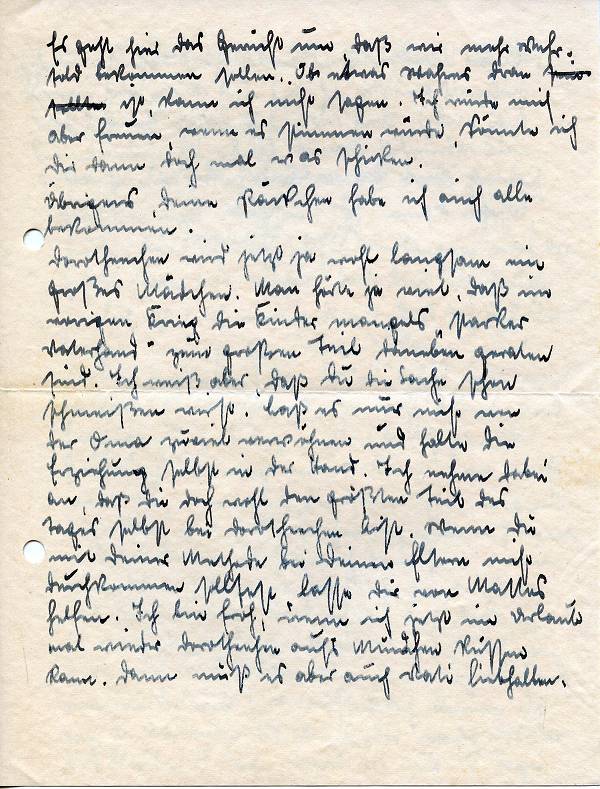 Es geht hier das Gerücht um, daß wir mehr Wehr-
sold bekommen sollen. Ob etwas Wahres dran
ist, kann ich nicht sagen. Ich würde mich
aber freuen, wenn es stimmen würde, könnte ich
Dir dann doch mal was schicken.
Übrigens, Deine Päckchen habe ich auch alle
bekommen.
Dorotheechen wird jetzt ja wohl langsam ein
großes Mädchen. Man hörte ja viel, daß im
vorigen Krieg die Kinder mangels "starker
Vaterhand" zum großen Teil daneben geraten
sind. Ich weiß aber, daß Du die Sache schon
schmeißen wirst. Laß es nur nicht von
der Oma zuviel verwöhnen und halte die
Erziehung selbst in der Hand. Ich nehme dabei
an, daß Du doch wohl den größten Teil des
Tages selbst bei Dorotheechen bist. Wenn Du
mit Deiner Methode bei Deinen Eltern nicht
durchkommen solltest, lasse Dir von
helfen. Ich bin froh, wenn ich jetzt im Urlaub
mal wieder Dorotheechen aufs Mündchen küssen
kann. Dann muß es aber auch Vati liebhalten.